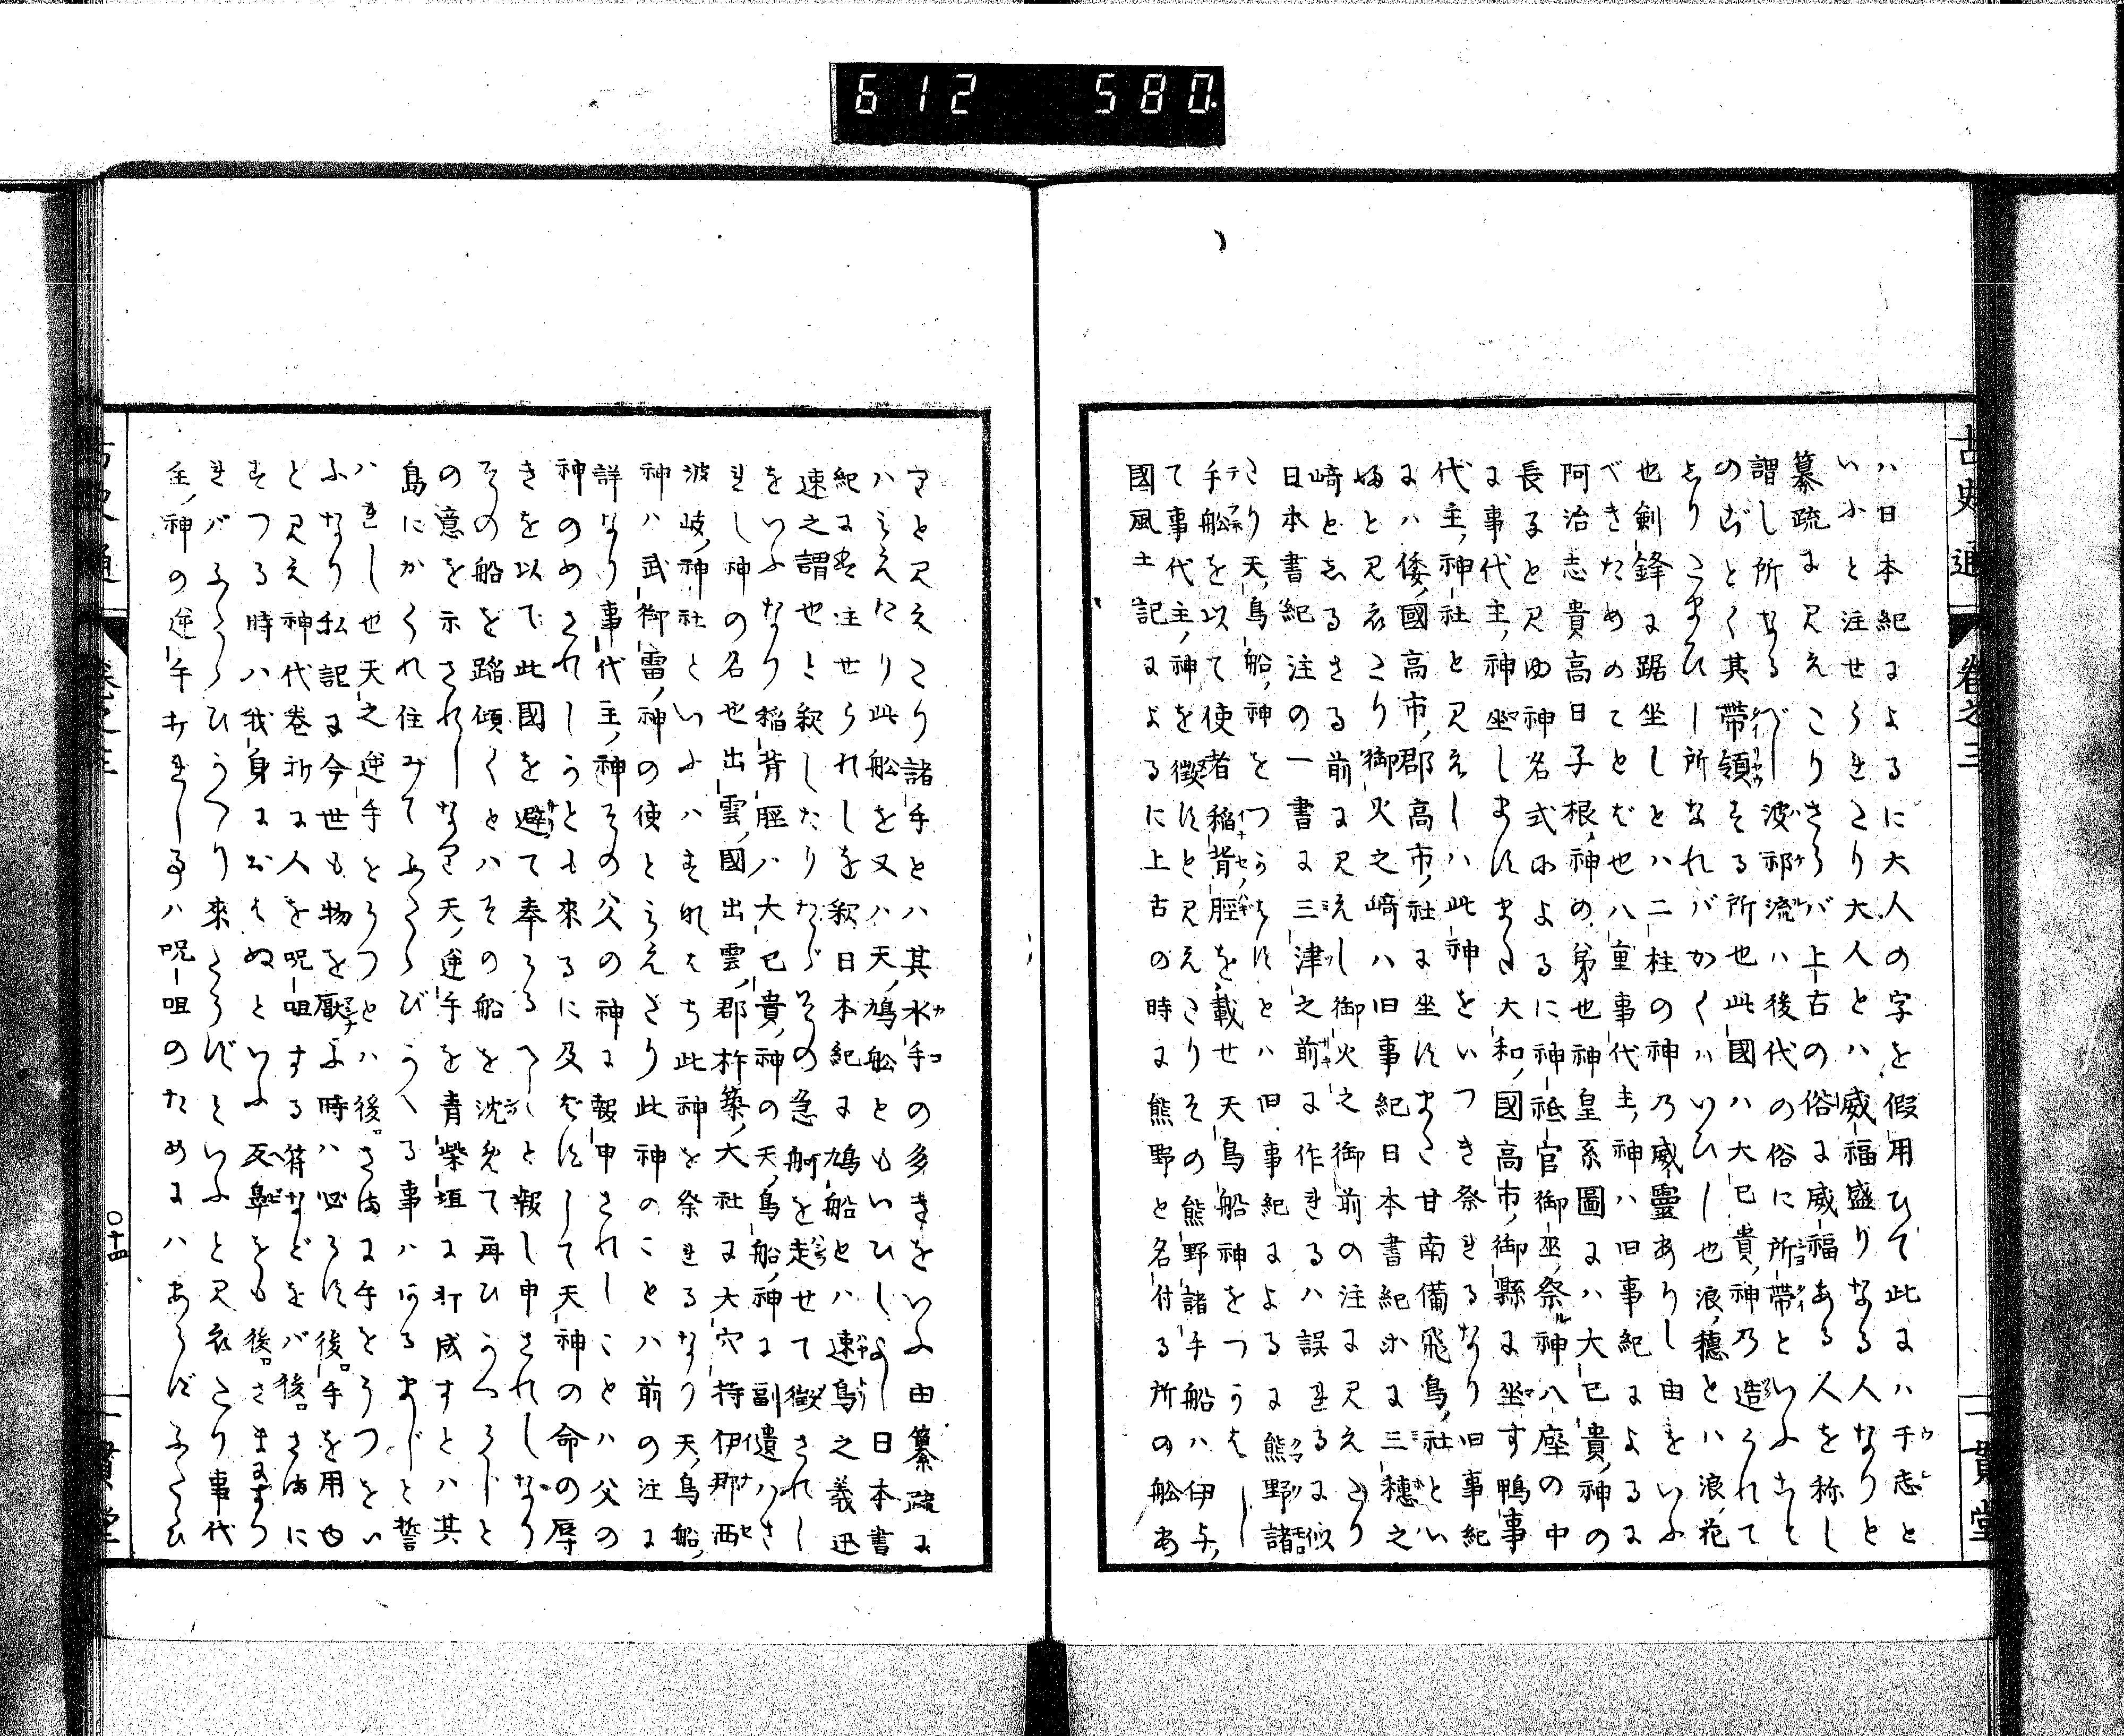 612 580
古史通 卷之三
ハ日本紀によるに大人の字を假用ひて此にハ于志と
いふと注せられたり大人とハ威福盛りなる人なりと
纂疏に見えたりさらバ上古の俗に威福ある人を称し
謂し所なるべし波祁流ハ後代の俗に所帶といふこと
のごとく其帶領する所也此國ハ大己貴神乃造られて
しりたまひし所なれバかくハいひし也浪穗とハ浪花
也剣鋒に踞坐しとハ二柱の神乃威靈ありし由をいふ
べきためのことば也八重事代主神ハ旧事紀によるに
阿治志貴高日子根神の弟也神皇系圖にハ大己貴神の
長ると見ゆ神名式によるに神祇官御巫祭神八座の中
に事代主神坐しますまた大和國高市御縣に坐す鴨事
代主神社と見えしハ此神をいつき祭れるなり旧事紀
にハ倭國高市郡高市社に坐すまた甘南備飛鳥社とい
ふと見えたり御火之﨑ハ旧事紀日本書紀に三穗之
﨑としるさる前に見えし御火之御前の注に見えたり
日本書紀注の一書に三津之前に作れるハ誤れるに似
たり天鳥船神をつかはすとハ旧事紀によるに熊野諸
手船を以て使者稲背脛を載せ天鳥船神をつかはし
て事代主神を徴すと見えたりその熊野諸手船ハ伊与
國風土記によるに上古の時に熊野と名付る所の舩あ
りと見えたり諸手とハ其水手の多きをいふ由纂疏に
ハみえたり此舩を又ハ天鳩舩ともいひしよし日本書
紀に注せられしを釈日本紀に鳩船とハ速鳥之義迅
速之謂也と釈したりたゞその急舸を走せて徴されし
をいふなり稲背脛ハ大己貴神の天鳥船神に副遣ハさ
れし神の名也出雲國出雲郡杵築大社に大穴持伊那西
波岐神社といふハすなはち此神を祭れるなり天鳥船
神ハ武御雷神の使とみえたり此神のことハ前の注に
詳なり事代主神その父の神に報申されしことハ父の
神のめされしかとも來るに及ばずして天神の命の辱
きを以て此國を避て奉らるべしと報し申されしなり
その船を蹈傾くとハその船を沈めて再ひかへらじと
の意を示されしなり天逆手を青柴垣に打成すとハ其
島にかくれ住みてふたゝびかへる事ハあるまじと誓
ハれし也天之逆手とうつとハ後さまに手をうつをい
ふなり私記に今世も物を厭ふ時ハ必らず後手を用ゆ
と見え神代卷祈に人を呪咀する䇳などをバ後さまに
すつる時ハ我身におはぬといふ反鼻をも後さまにすつ
れバふたゝびかへり來らずといふと見えたり事代
主神の逆手打れし事ハ呪咀のためにハあらずふたゝひ
○十四
一貫堂